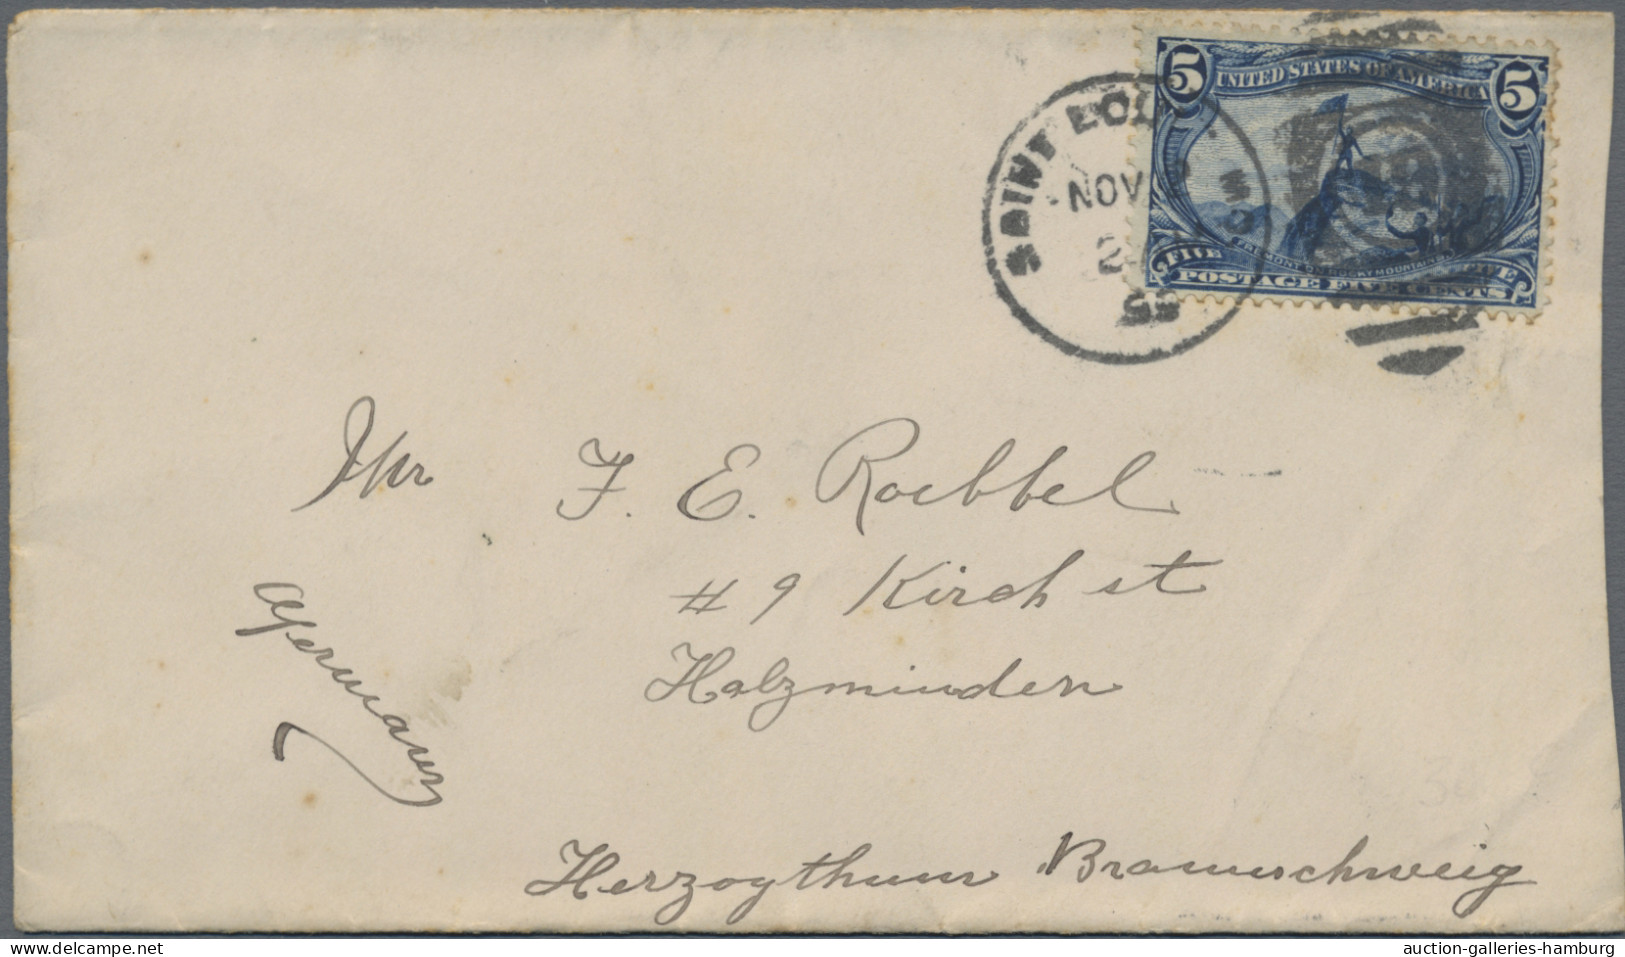 5 UNITED STATES OF AMERICA 5
SAINT LOUIS MO.
NOV
2
FIVE FIVE
FREMONT ON ROCKY MOUNTAINS
POSTAGE FIVE CENTS
Mr F. E. Roebbel
# 9 Kirch st
Holzminden
Germany
Herzogthum Braunschweig
delcampe.net
auction-galleries-hamburg